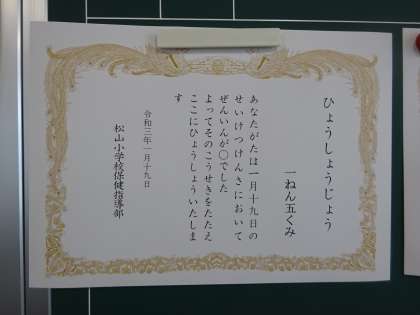 ひょうしょうじょう
一ねん五くみ
あなたがたは一月十九日の
せいけつけんさにおいて
ぜんいんが〇でした
よってそのこうせきをたたえ
ここにひょうしょういたしま
す
令和三年一月十九日
松山小学校保健指導部